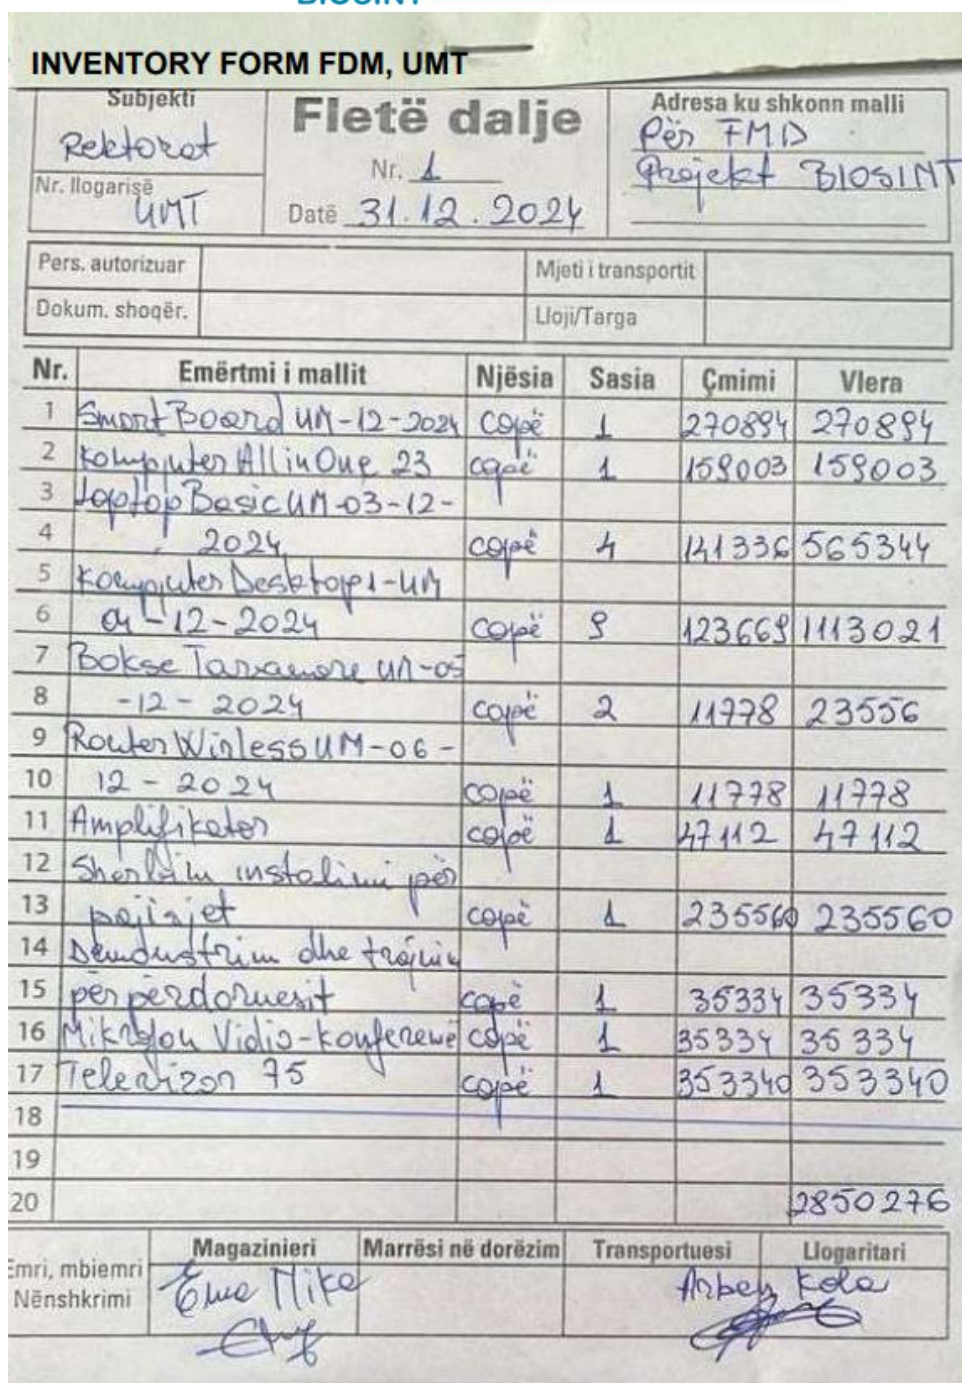 BIOSINT
INVENTORY FORM FDM, UMT
Subjekti
Rektorat
Nr. llogarisë
UMT
Fletë dalje
Nr. 1
Datë 31.12.2024
Adresa ku shkonn malli
Për FMD
Projekt BIOSINT
Pers. autorizuar Mjeti i transportit
Dokum. shoqër. Lloji/Targa
Nr. Emërtmi i mallit Njësia Sasia Çmimi Vlera
1 Smart Board UM-12-2024 copë 1 270894 270894
2 Kompjuter All in One 23 copë 1 159003 159003
3 Laptop Basic UM-03-12-
4 2024 copë 4 141336 565344
5 Kompjuter Desktop1-UM
6 04-12-2024 copë 9 123669 1113021
7 Bokse Tavanore UM-05
8 -12-2024 copë 2 11778 23556
9 Router Wirless UM-06-
10 12-2024 copë 1 11778 11778
11 Amplifikator copë 1 47112 47112
12 Sherbim instalimi për
13 pajisjet copë 1 235560 235560
14 dhe trajnim
15 për përdoruesit copë 1 35334 35334
16 Mikrofon Vidio-konferencë copë 1 35334 35334
17 Televizor 75 copë 1 353340 353340
18
19
20 2850276
Emri, mbiemri
Nënshkrimi
Magazinieri Marrësi në dorëzim Transportuesi Llogaritari
Ema Mika Arben Kola